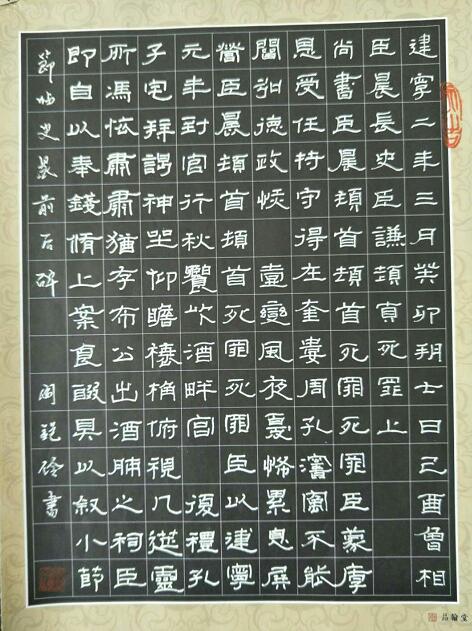 建寧二年三月癸卯朔七日己酉魯相
臣晨長史臣謙頓首死罪上
尚書臣晨頓首頓首死罪死罪臣蒙厚
恩受任符守得在奎婁周孔舊寓不能
闡弘德政恢 壹變夙夜憂怖累息屏
營臣晨頓首頓首死罪死罪臣以建寧
元年到官行秋饗飲酒畔宮 復禮孔
子宅拜謁神坐仰瞻榱桷俯視几筵靈
所馮依肅肅猶存布公出酒脯之祠臣
即自以奉錢脩上案食醊具以叙小節
節临史晨前后碑 書
品翰堂